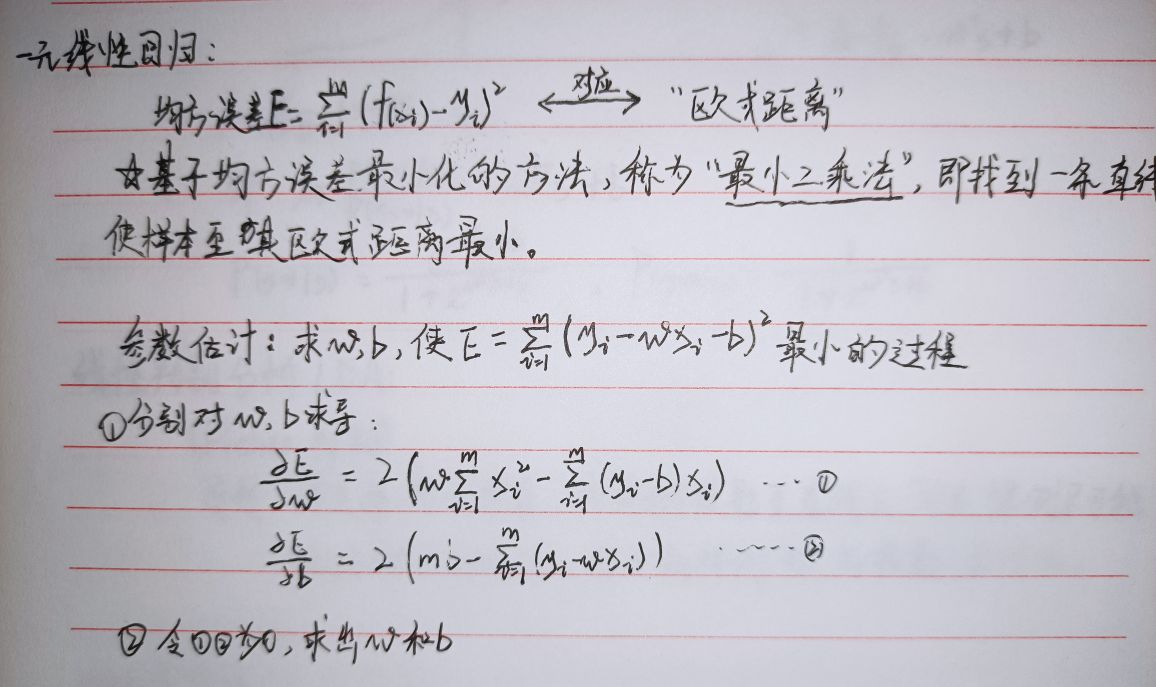 一元线性回归：
均方误差E=∑_{i=1}^{m}(f(x_i)-y_i)² ⟷对应 “欧式距离”
☆基于均方误差最小化的方法，称为“最小二乘法”，即找到一条直线
使样本至其欧式距离最小。
参数估计：求w,b,使E=∑_{i=1}^{m}(y_i-wx_i-b)²最小的过程
①分别对w,b求导：
∂E/∂w = 2(w∑_{i=1}^{m}x_i²-∑_{i=1}^{m}(y_i-b)x_i) …①
∂E/∂b = 2(mb-∑_{i=1}^{m}(y_i-wx_i)) ……②
②令①②为0，求出w和b